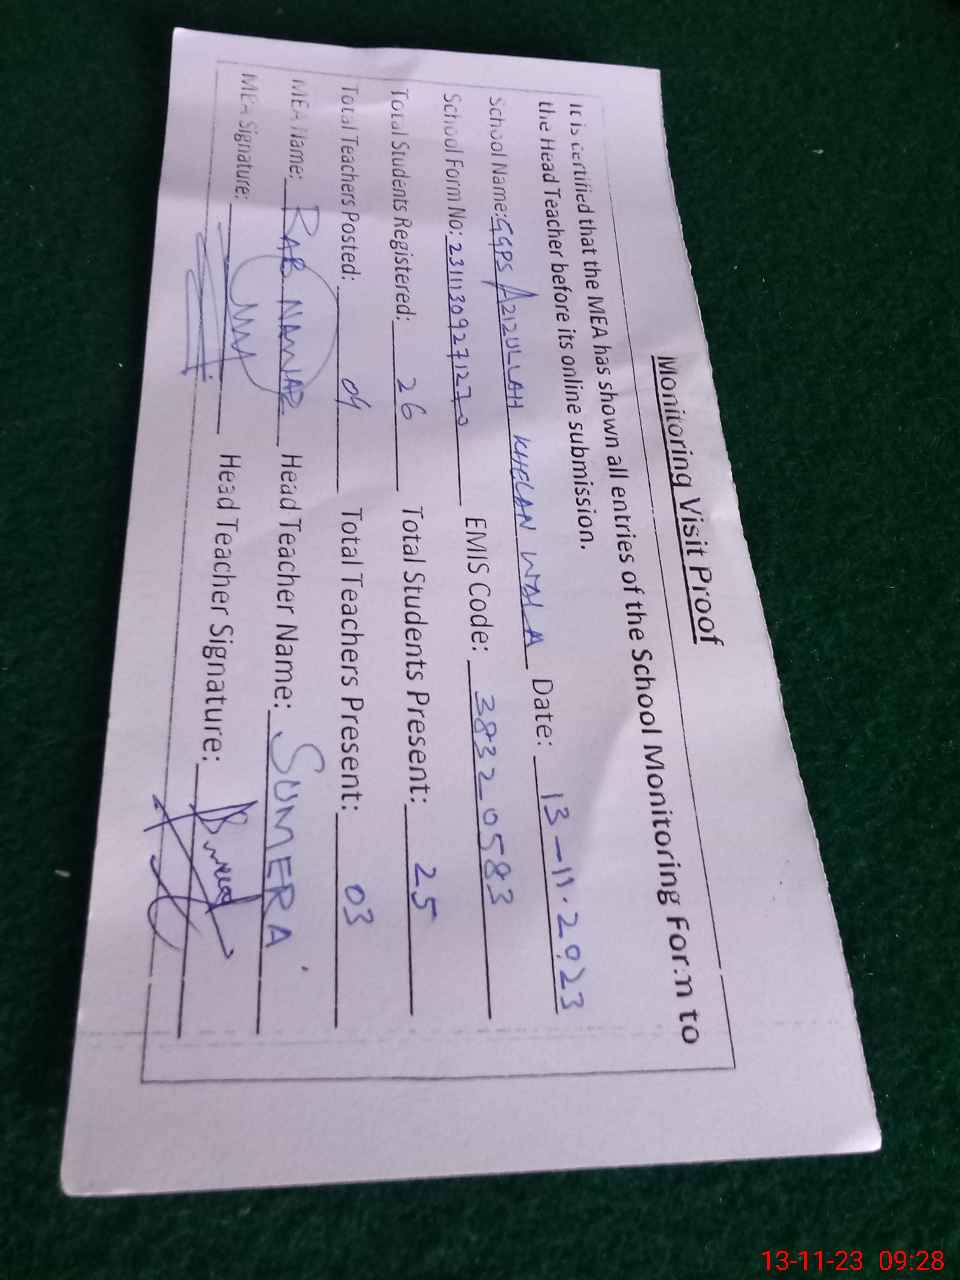 Monitoring Visit Proof
It is certified that the MEA has shown all entries of the School Monitoring Form to
the Head Teacher before its online submission.
School Name: GGPS AZIZULLAH KHELAN WALA Date: 13-11-2023
School Form No: 23111309271270 EMIS Code: 38320583
Total Students Registered: 26 Total Students Present: 25
Total Teachers Posted: 04 Total Teachers Present: 03
MEA Name: RAB NAWAZ Head Teacher Name: SUMERA
MEA Signature: Head Teacher Signature:
13-11-23 09:28